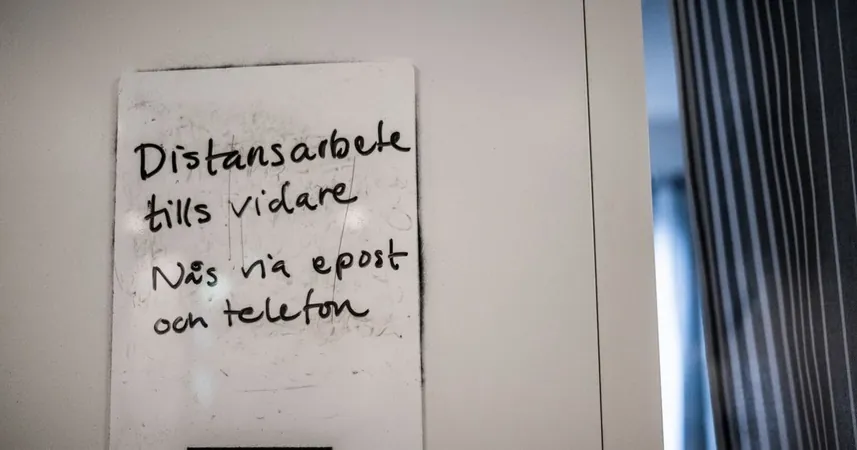 Distansarbete
tills vidare
Nås via epost
och telefon